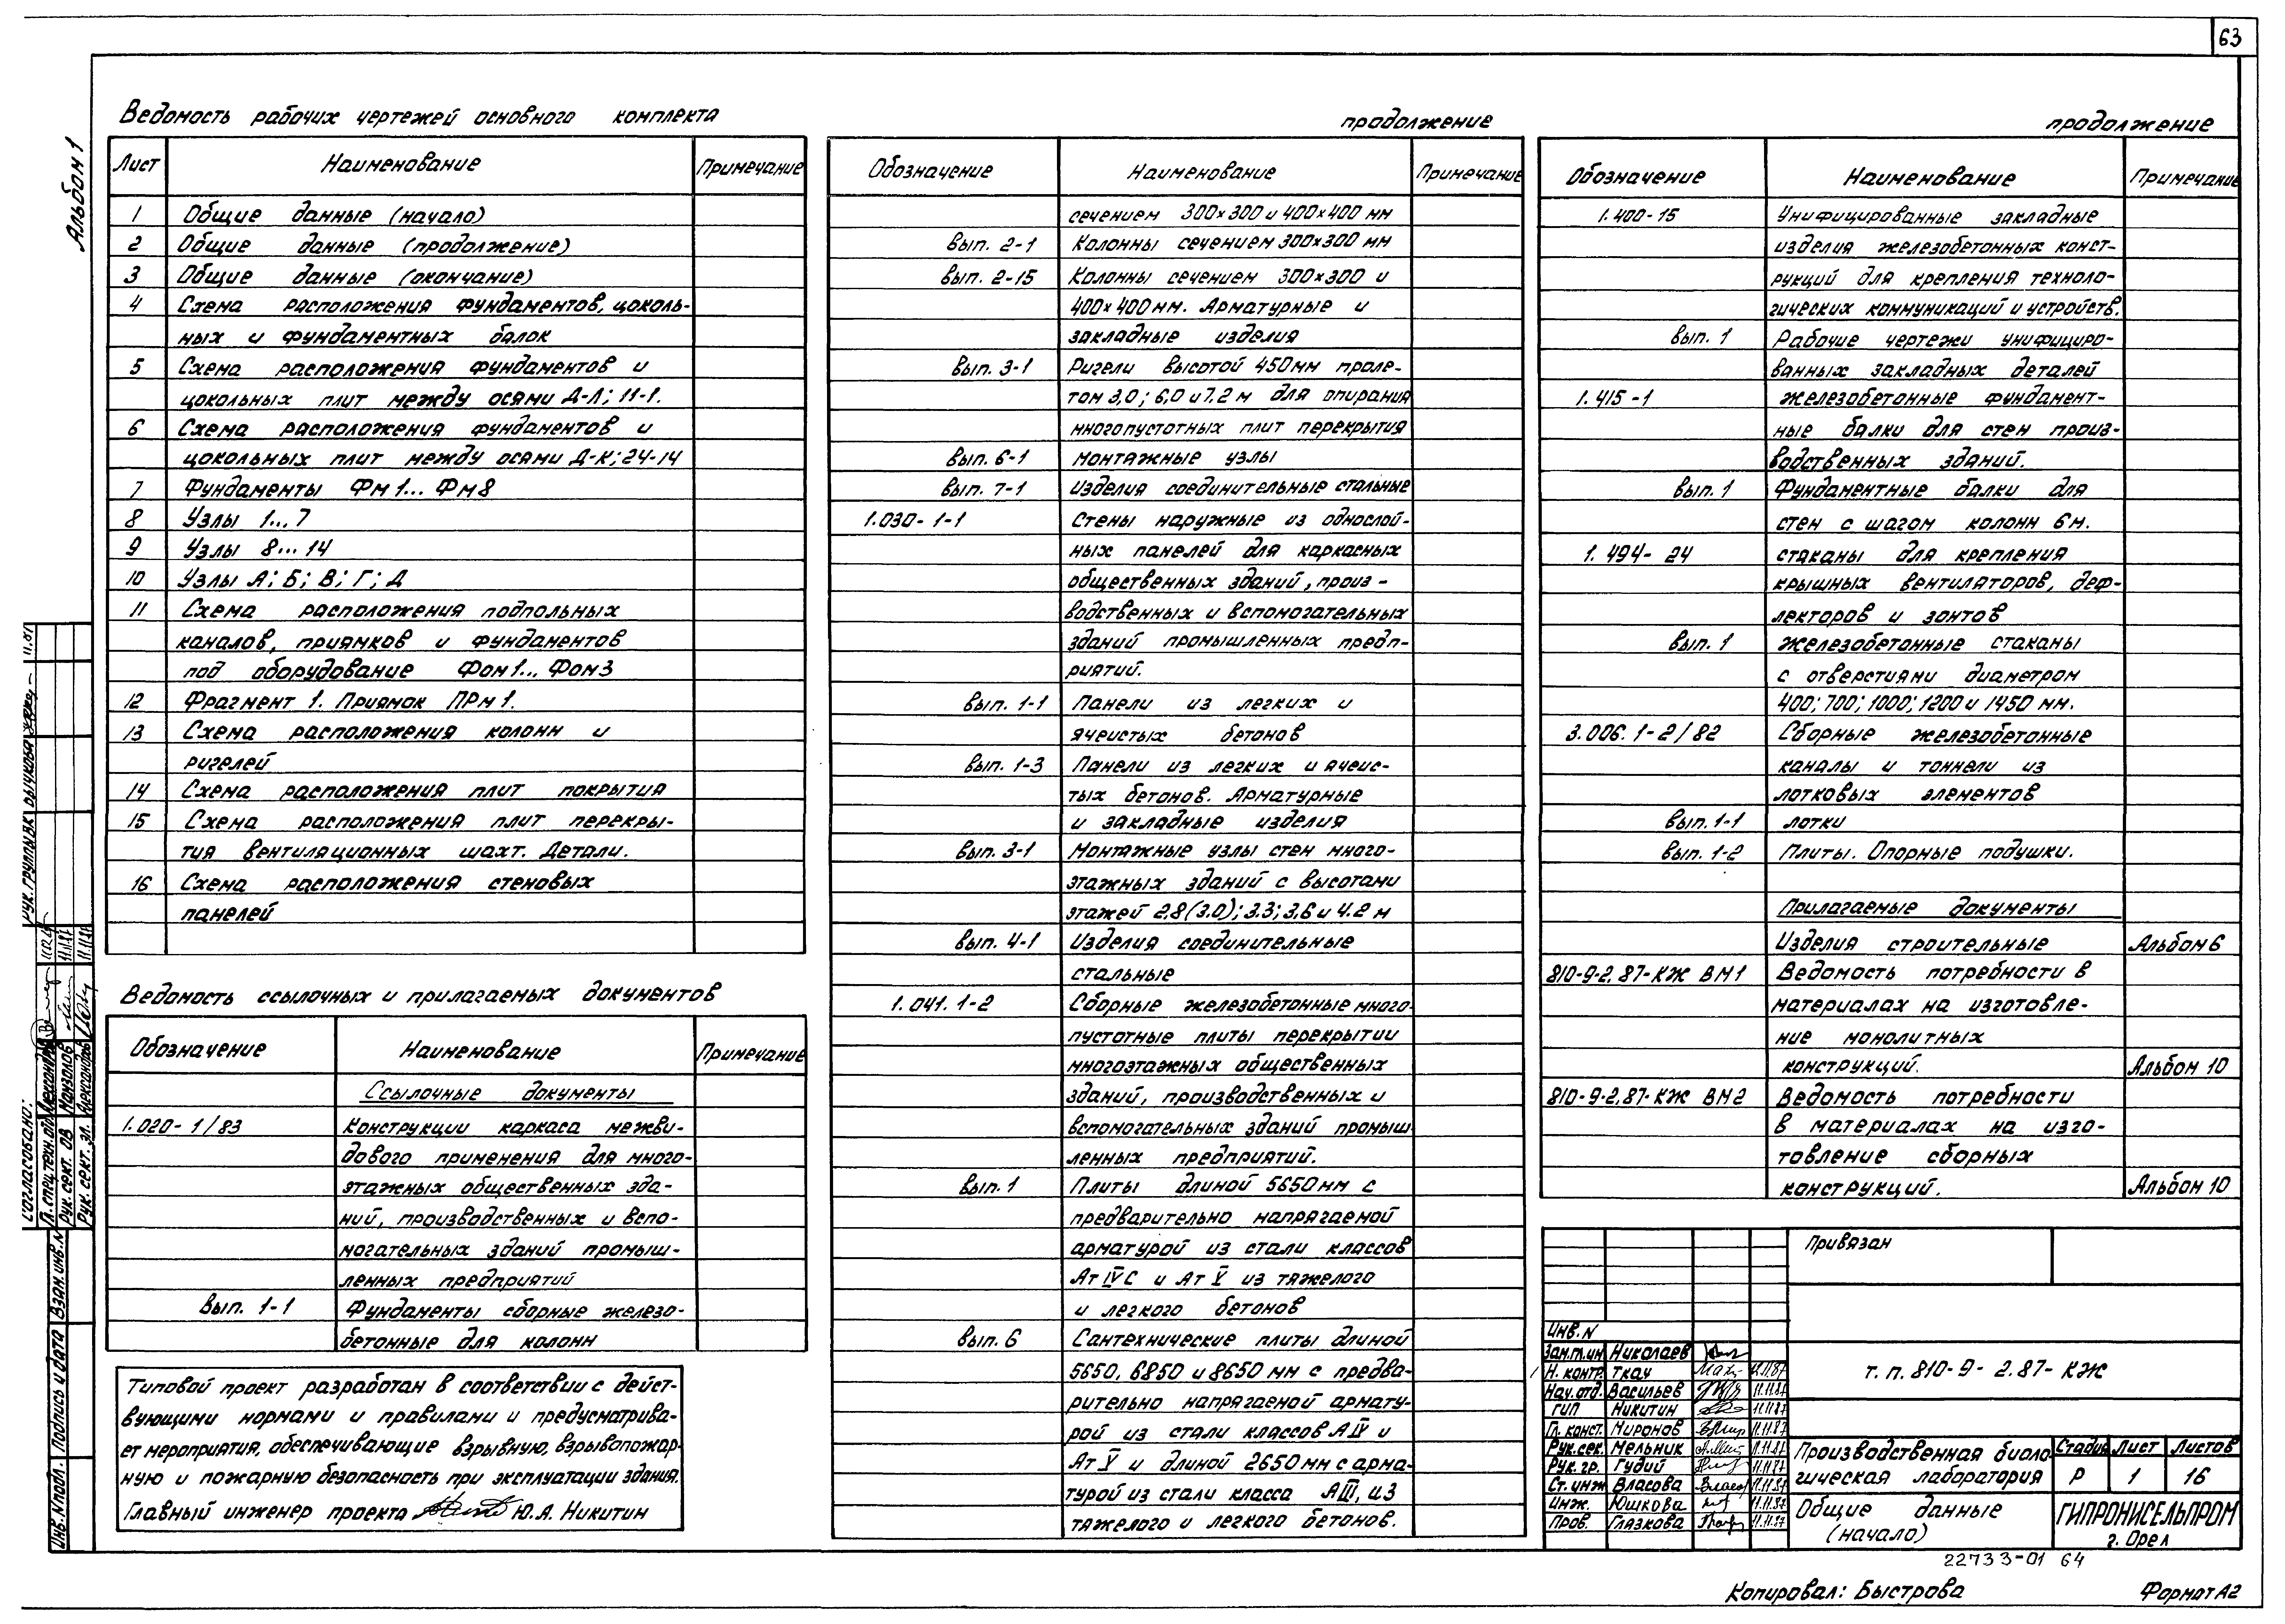 63
Альбом 1
Ведомость рабочих чертежей основного комплекта
Лист Наименование Примечание
1 Общие данные (начало)
2 Общие данные (продолжение)
3 Общие данные (окончание)
4 Схема расположения фундаментов, цоколь-
ных и фундаментных балок
5 Схема расположения фундаментов и
цокольных плит между осями Д-Л; 11-1.
6 Схема расположения фундаментов и
цокольных плит между осями Д-К; 24-14
7 Фундаменты Фм1... Фм8
8 Узлы 1...7
9 Узлы 8...14
10 Узлы А; Б; В; Г; Д
11 Схема расположения подпольных
каналов, приямков и фундаментов
под оборудование Фом1... Фом3
12 Фрагмент 1. Приямок ПРм1.
13 Схема расположения колонн и
ригелей
14 Схема расположения плит покрытия
15 Схема расположения плит перекры-
тия вентиляционных шахт. Детали.
16 Схема расположения стеновых
панелей
Ведомость ссылочных и прилагаемых документов
Обозначение Наименование Примечание
Ссылочные документы
1.020-1/83 Конструкции каркаса межви-
дового применения для много-
этажных общественных зда-
ний, производственных и вспо-
могательных зданий промыш-
ленных предприятий
Вып. 1-1 Фундаменты сборные железо-
бетонные для колонн
Типовой проект разработан в соответствии с дейст-
вующими нормами и правилами и предусматрива-
ет мероприятия, обеспечивающие взрывную, взрывопожар-
ную и пожарную безопасность при эксплуатации здания.
Главный инженер проекта Ю.А. Никитин
продолжение
Обозначение Наименование Примечание
сечением 300×300 и 400×400 мм
Вып. 2-1 Колонны сечением 300×300 мм
Вып. 2-15 Колонны сечением 300×300 и
400×400 мм. Арматурные и
закладные изделия
Вып. 3-1 Ригели высотой 450мм проле-
том 3,0; 6,0 и 7.2 м для опирания
многопустотных плит перекрытия
Вып. 6-1 монтажные узлы
Вып. 7-1 Изделия соединительные стальные
1.030-1-1 Стены наружные из однослой-
ных панелей для каркасных
общественных зданий, произ-
водственных и вспомогательных
зданий промышленных предп-
риятий.
Вып. 1-1 Панели из легких и
ячеистых бетонов
Вып. 1-3 Панели из легких и ячеис-
тых бетонов. Арматурные
и закладные изделия
Вып. 3-1 Монтажные узлы стен много-
этажных зданий с высотами
этажей 2,8(3.0); 3.3; 3,6 и 4.2 м
Вып. 4-1 Изделия соединительные
стальные
1.041.1-2 Сборные железобетонные много-
пустотные плиты перекрытий
многоэтажных общественных
зданий, производственных и
вспомогательных зданий промыш
ленных предприятий.
Вып. 1 Плиты длиной 5650мм с
предварительно напрягаемой
арматурой из стали классов
Ат IV С и Ат V из тяжелого
и легкого бетонов
Вып. 6 Сантехнические плиты длиной
5650, 6850 и 8650 мм с предва-
рительно напрягаемой армату-
рой из стали классов А IV и
Ат V и длиной 2650мм с арма-
турой из стали класса А III, из
тяжелого и легкого бетонов.
продолжение
Обозначение Наименование Примечание
1.400-15 Унифицированные закладные
изделия железобетонных конст-
рукций для крепления техноло-
гических коммуникаций и устройств.
Вып. 1 Рабочие чертежи унифициро-
ванных закладных деталей
1.415-1 железобетонные фундамент-
ные балки для стен произ-
водственных зданий.
Вып. 1 Фундаментные балки для
стен с шагом колонн 6м.
1.494-24 стаканы для крепления
крышных вентиляторов, деф-
лекторов и зонтов
Вып. 1 железобетонные стаканы
с отверстиями диаметром
400; 700; 1000; 1200 и 1450 мм.
3.006.1-2/82 Сборные железобетонные
каналы и тоннели из
лотковых элементов
Вып. 1-1 лотки
Вып. 1-2 Плиты. Опорные подушки.
Прилагаемые документы
Изделия строительные Альбом 6
810-9-2.87-КЖ ВМ1 Ведомость потребности в
материалах на изготовле-
ние монолитных
конструкций. Альбом 10
810-9-2.87-КЖ ВМ2 Ведомость потребности
в материалах на изго-
товление сборных
конструкций. Альбом 10
Привязан
Инв. N
Зам.гл.ин Николаев
Н. контр. Ткач 11.11.87
Нач. отд. Васильев 11.11.87
ГИП Никитин 11.11.87
Гл. конст. Миронов 11.11.87
Рук.сек. Мельник 11.11.87
Рук. гр. Гудий 11.11.87
Ст. инж Власова 11.11.87
Инж. Юшкова 11.11.87
Пров. Глазкова 11.11.87
т. п. 810-9-2.87-КЖ
Производственная биоло-
гическая лаборатория
Стадия Лист Листов
Р 1 16
Общие данные
(начало)
ГИПРОНИСЕЛЬПРОМ
г. Орел
22733-01 64
Копировал: Быстрова Формат А2
Согласовано:
Рук. сект. ОВ Манзолов 11.11.87
Рук. сект. эл. Александров
Рук. группы ВК
Инв. N подл. Подпись и дата Взам. инв. N